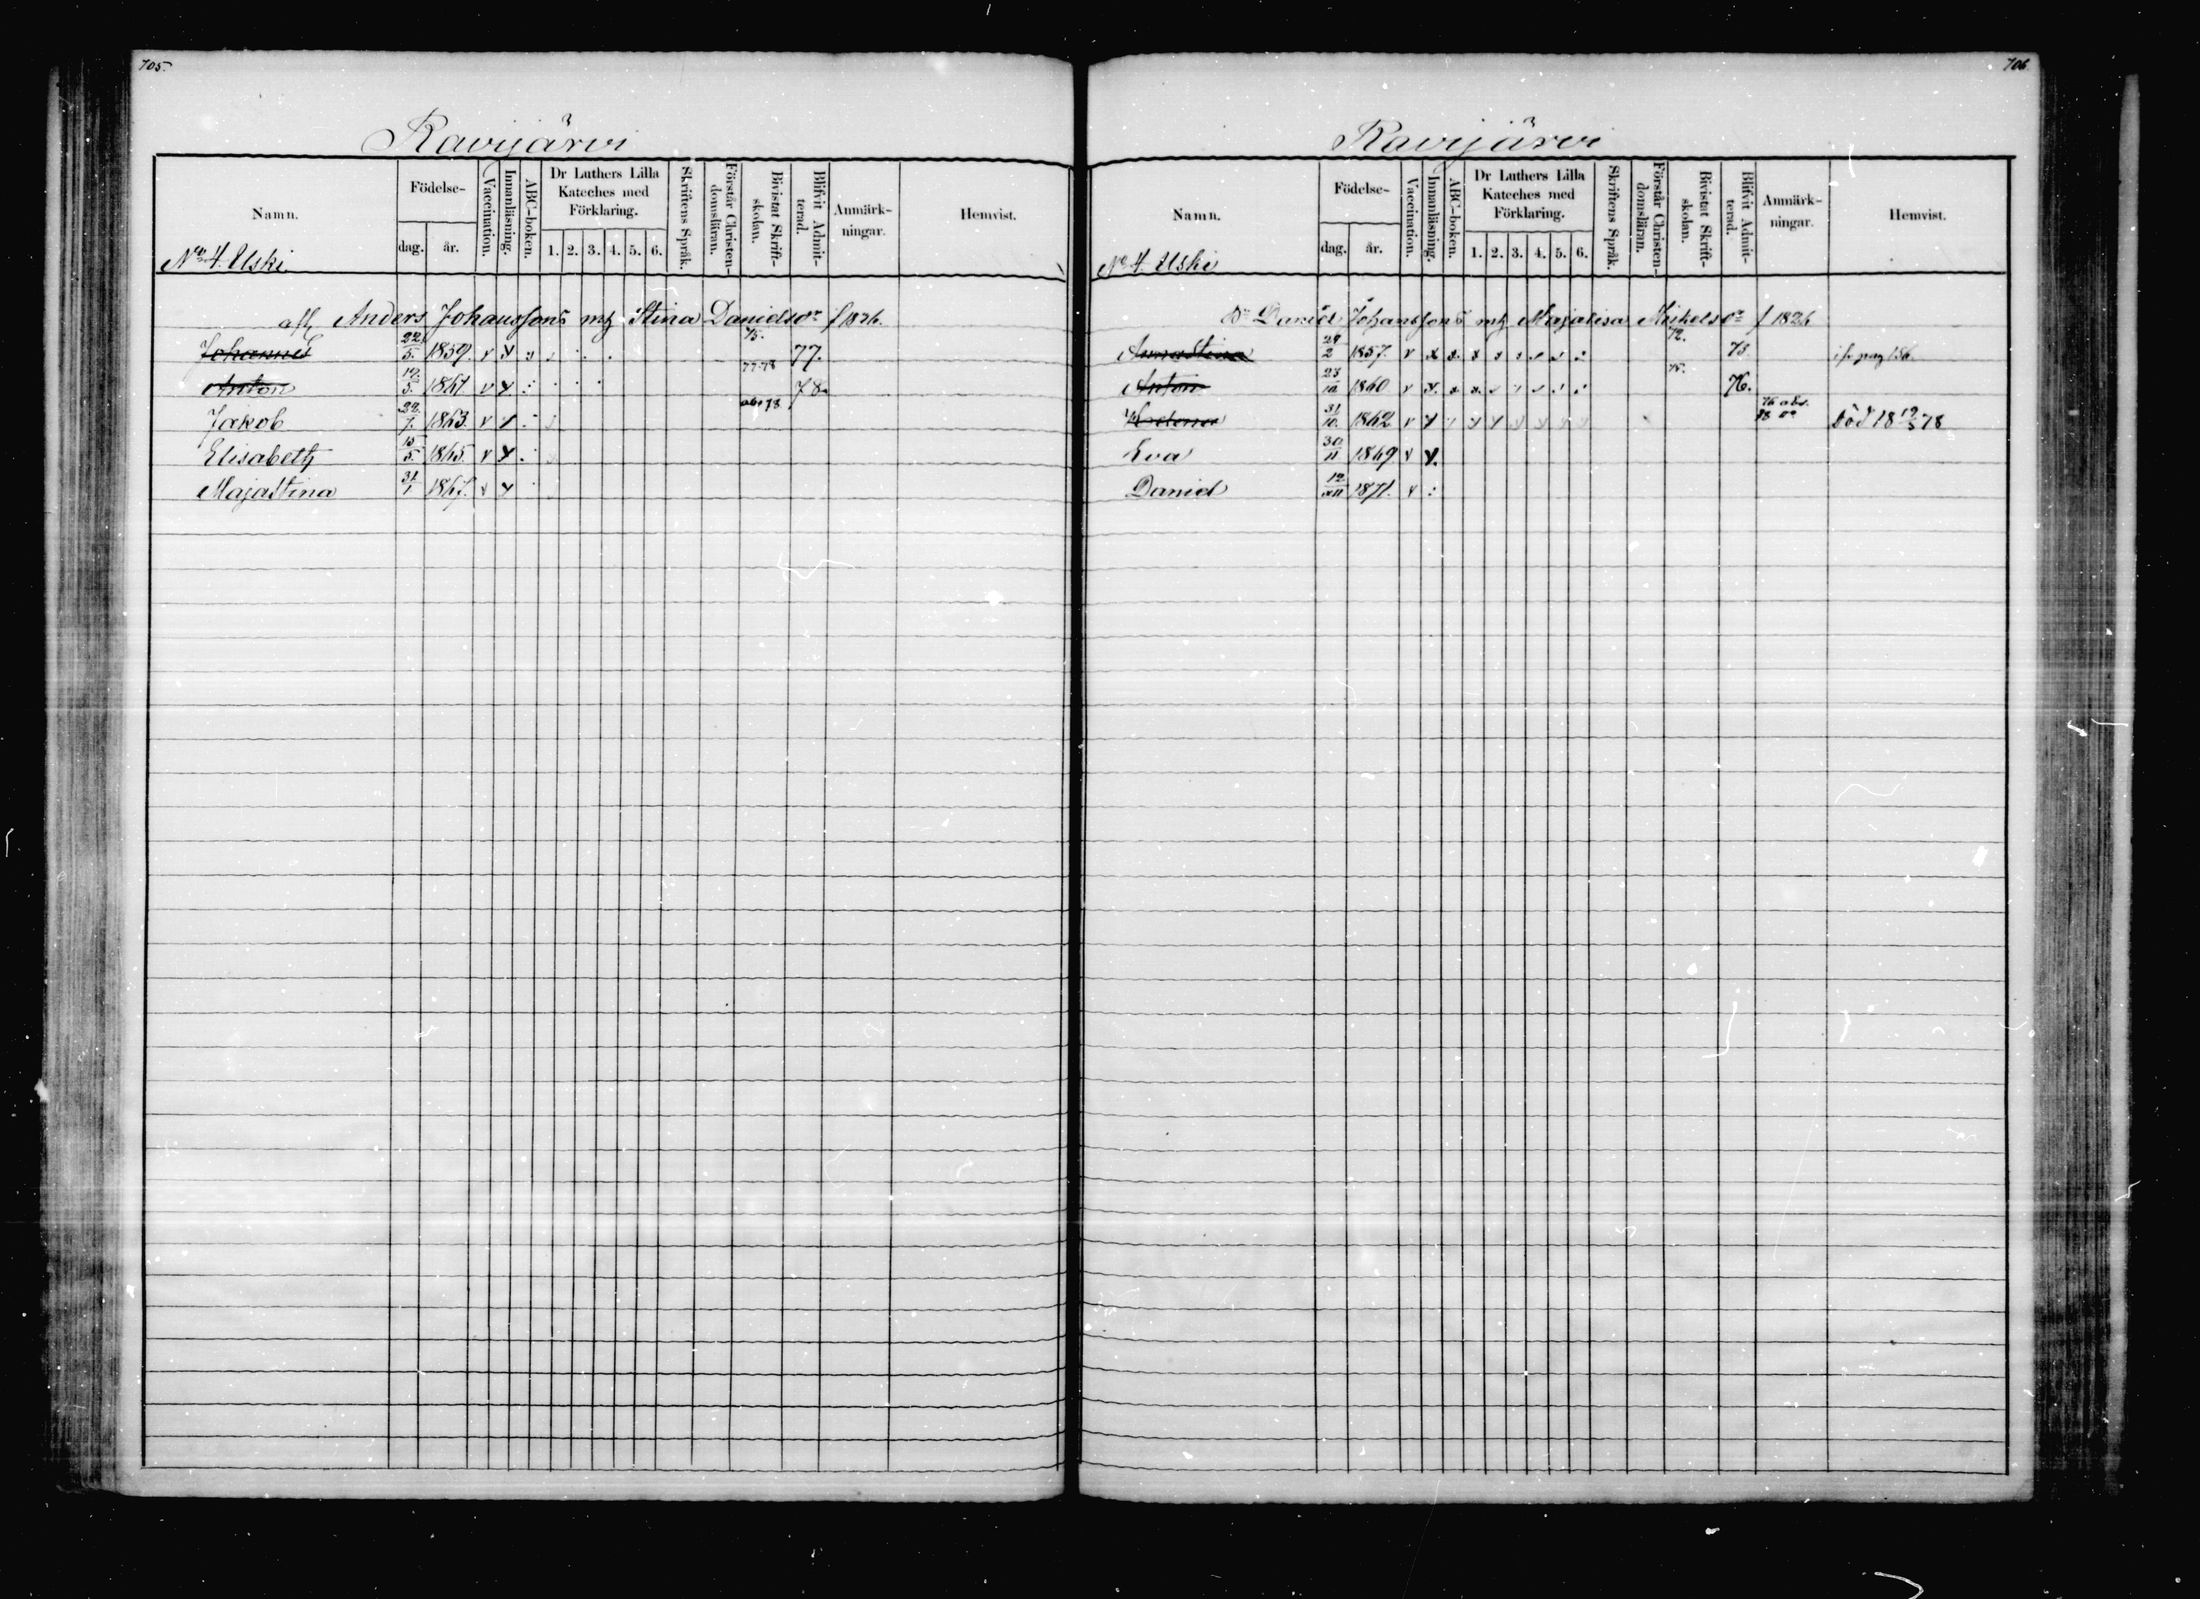 705.
Ravijärvi
Namn.
Födelse-
dag. år.
Vaccination.
Innanläsning.
ABC-boken.
Dr Luthers Lilla
Kateches med
Förklaring.
1. 2. 3. 4. 5. 6.
Skriftens Språk.
Förstår Christen-
domsläran.
Bivistat Skrift-
skolan.
Blifvit Admit-
terad.
Anmärk-
ningar.
Hemvist.
No 4. Uski
Anders Johanssons Stina Danielsdr f 1836.
Johannes 22/5. 1859. 75. 77.
Anton 1861. 77.78 78.
Jakob 22/7. 1863. abs 78
Elisabeth 15/5. 1865.
Majastina 31/1 1867.
706
Ravijärvi
Namn.
Födelse-
dag. år.
Vaccination.
Innanläsning.
ABC-boken.
Dr Luthers Lilla
Kateches med
Förklaring.
1. 2. 3. 4. 5. 6.
Skriftens Språk.
Förstår Christen-
domsläran.
Bivistat Skrift-
skolan.
Blifvit Admit-
terad.
Anmärk-
ningar.
Hemvist.
No 4. Uski
Daniel Johanssons Majalisa Mikelsdr f 1826
Annastina 1857. 72. 73.
Anton 1860. 75. 76.
31/10. 1862 76 abs. Död 18 12/5 78
Eva 30/11 1869
Daniel 1871.